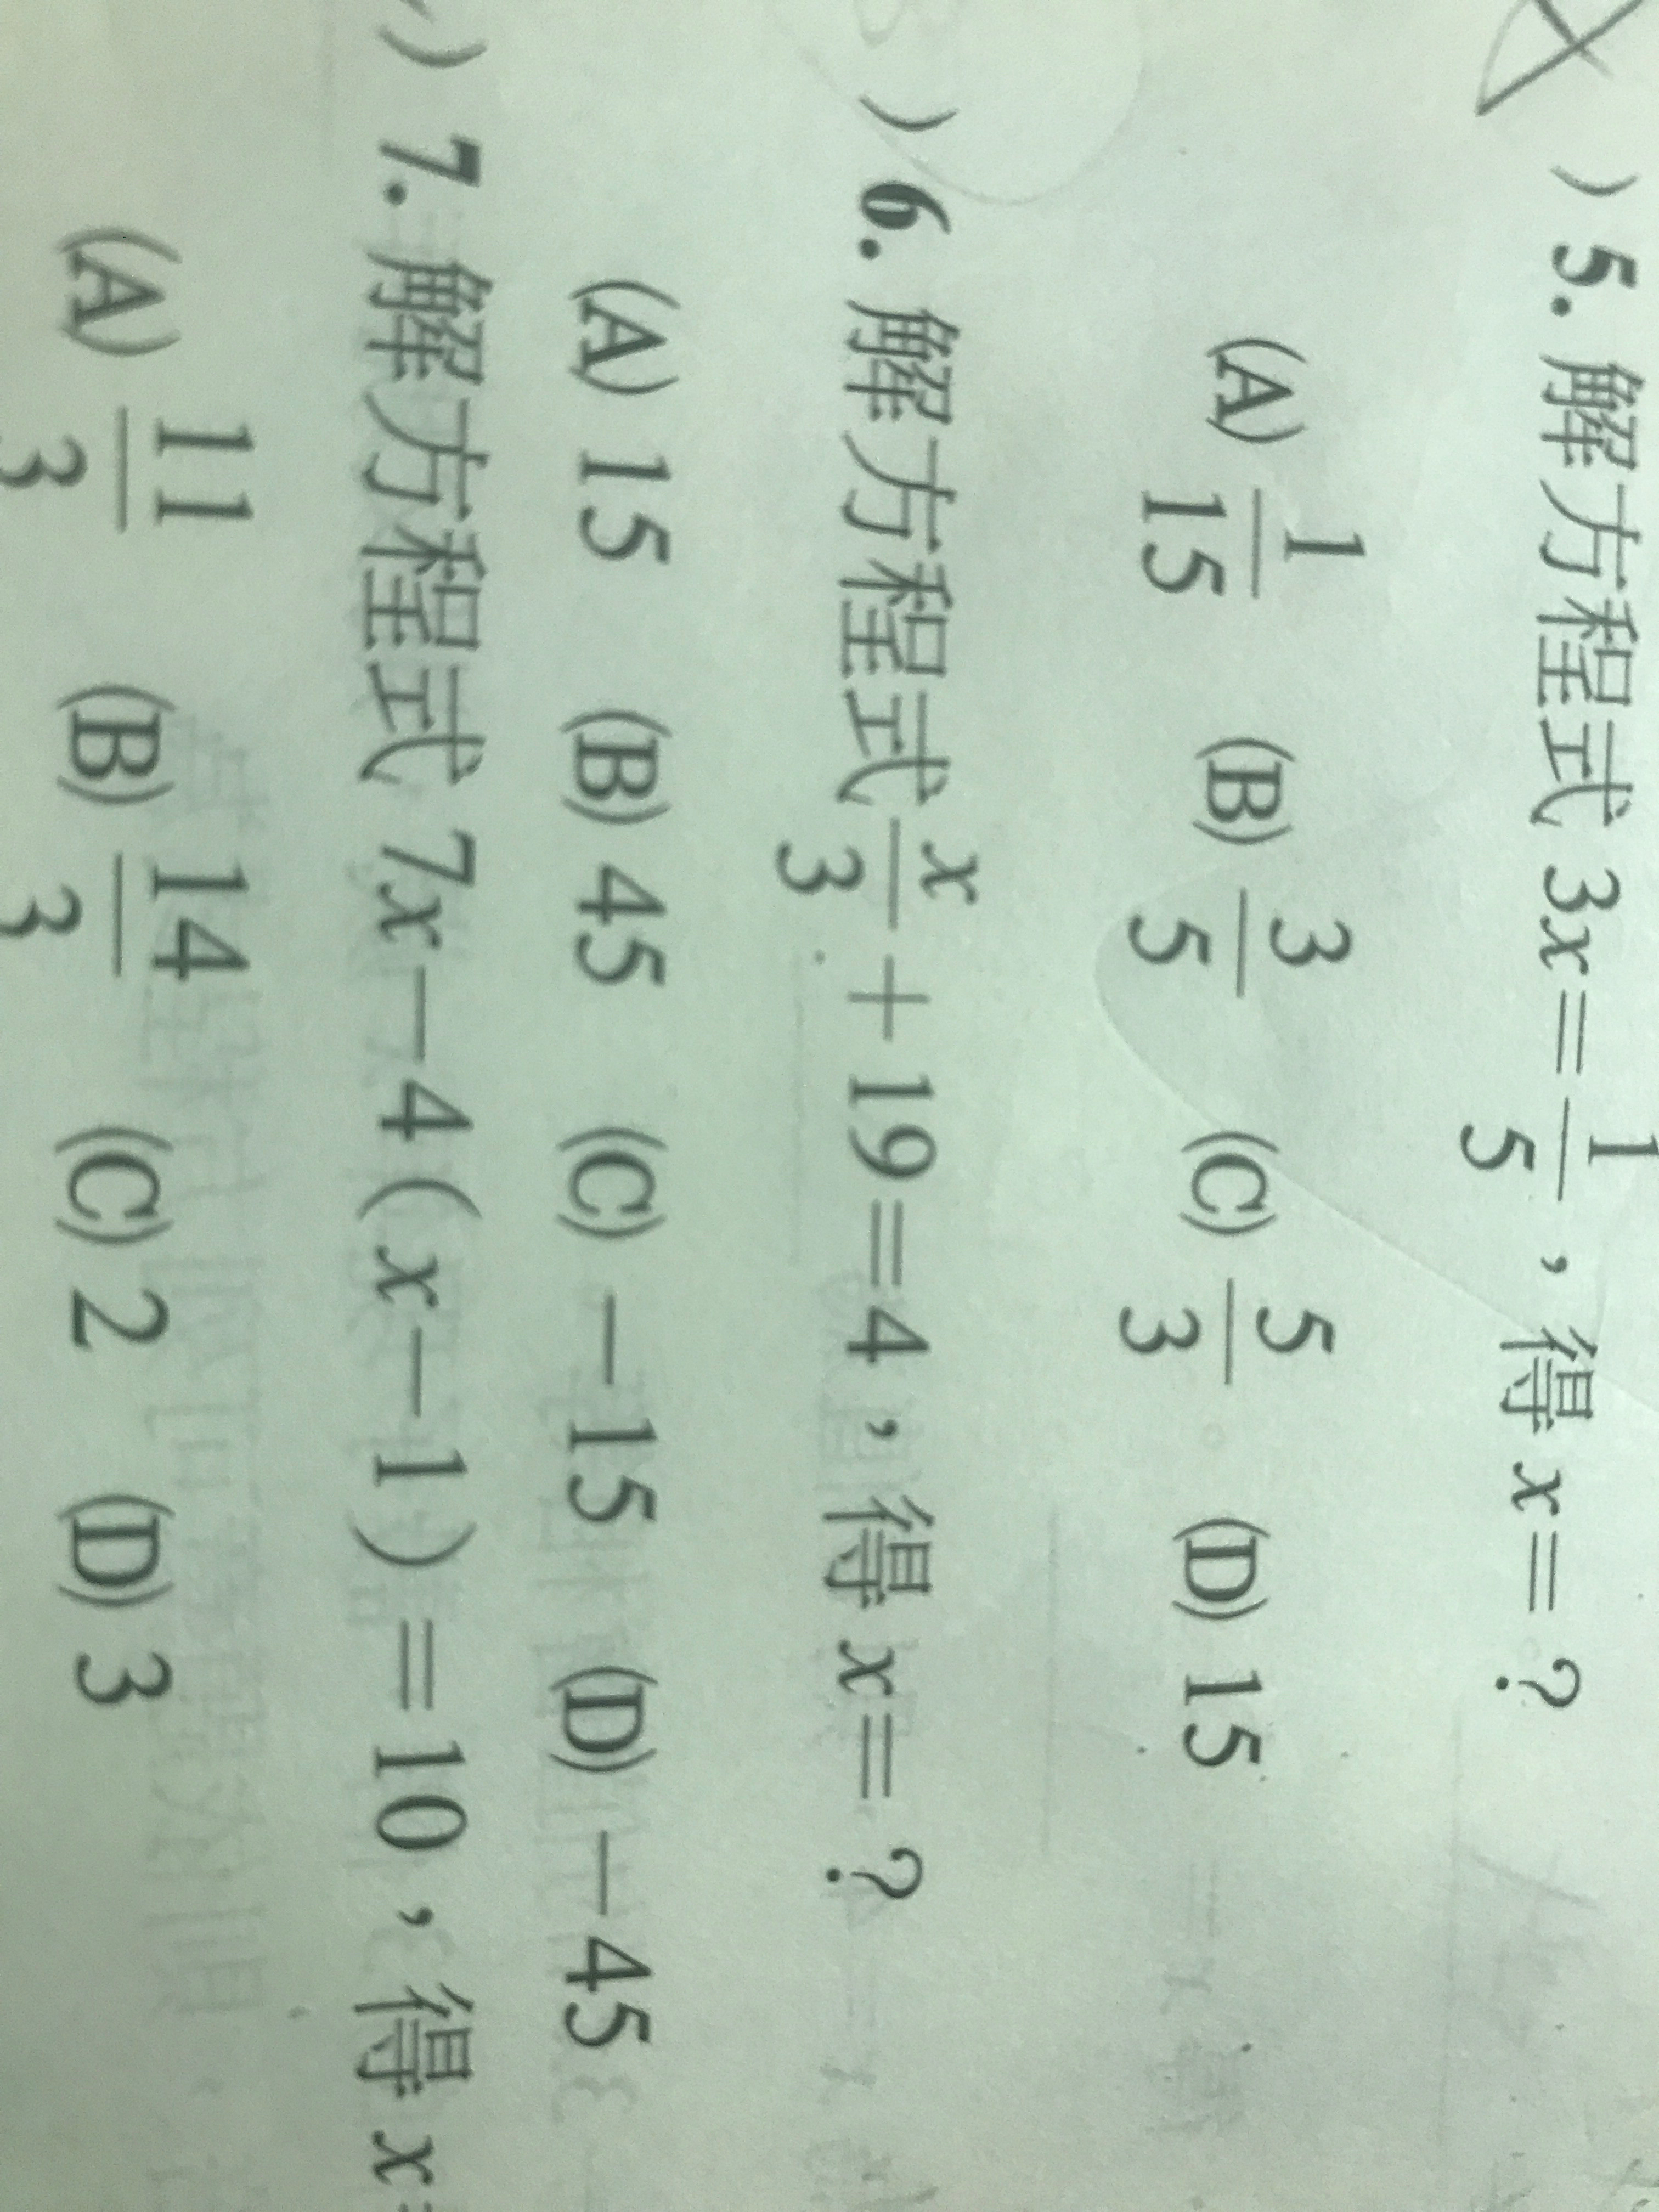 ) 5. 解方程式 3x=1/5，得 x=？
(A) 1/15 (B) 3/5 (C) 5/3 (D) 15
) 6. 解方程式 x/3+19=4，得 x=？
(A) 15 (B) 45 (C) −15 (D) −45
) 7. 解方程式 7x−4(x−1)=10，得 x=
(A) 11/3 (B) 14/3 (C) 2 (D) 3